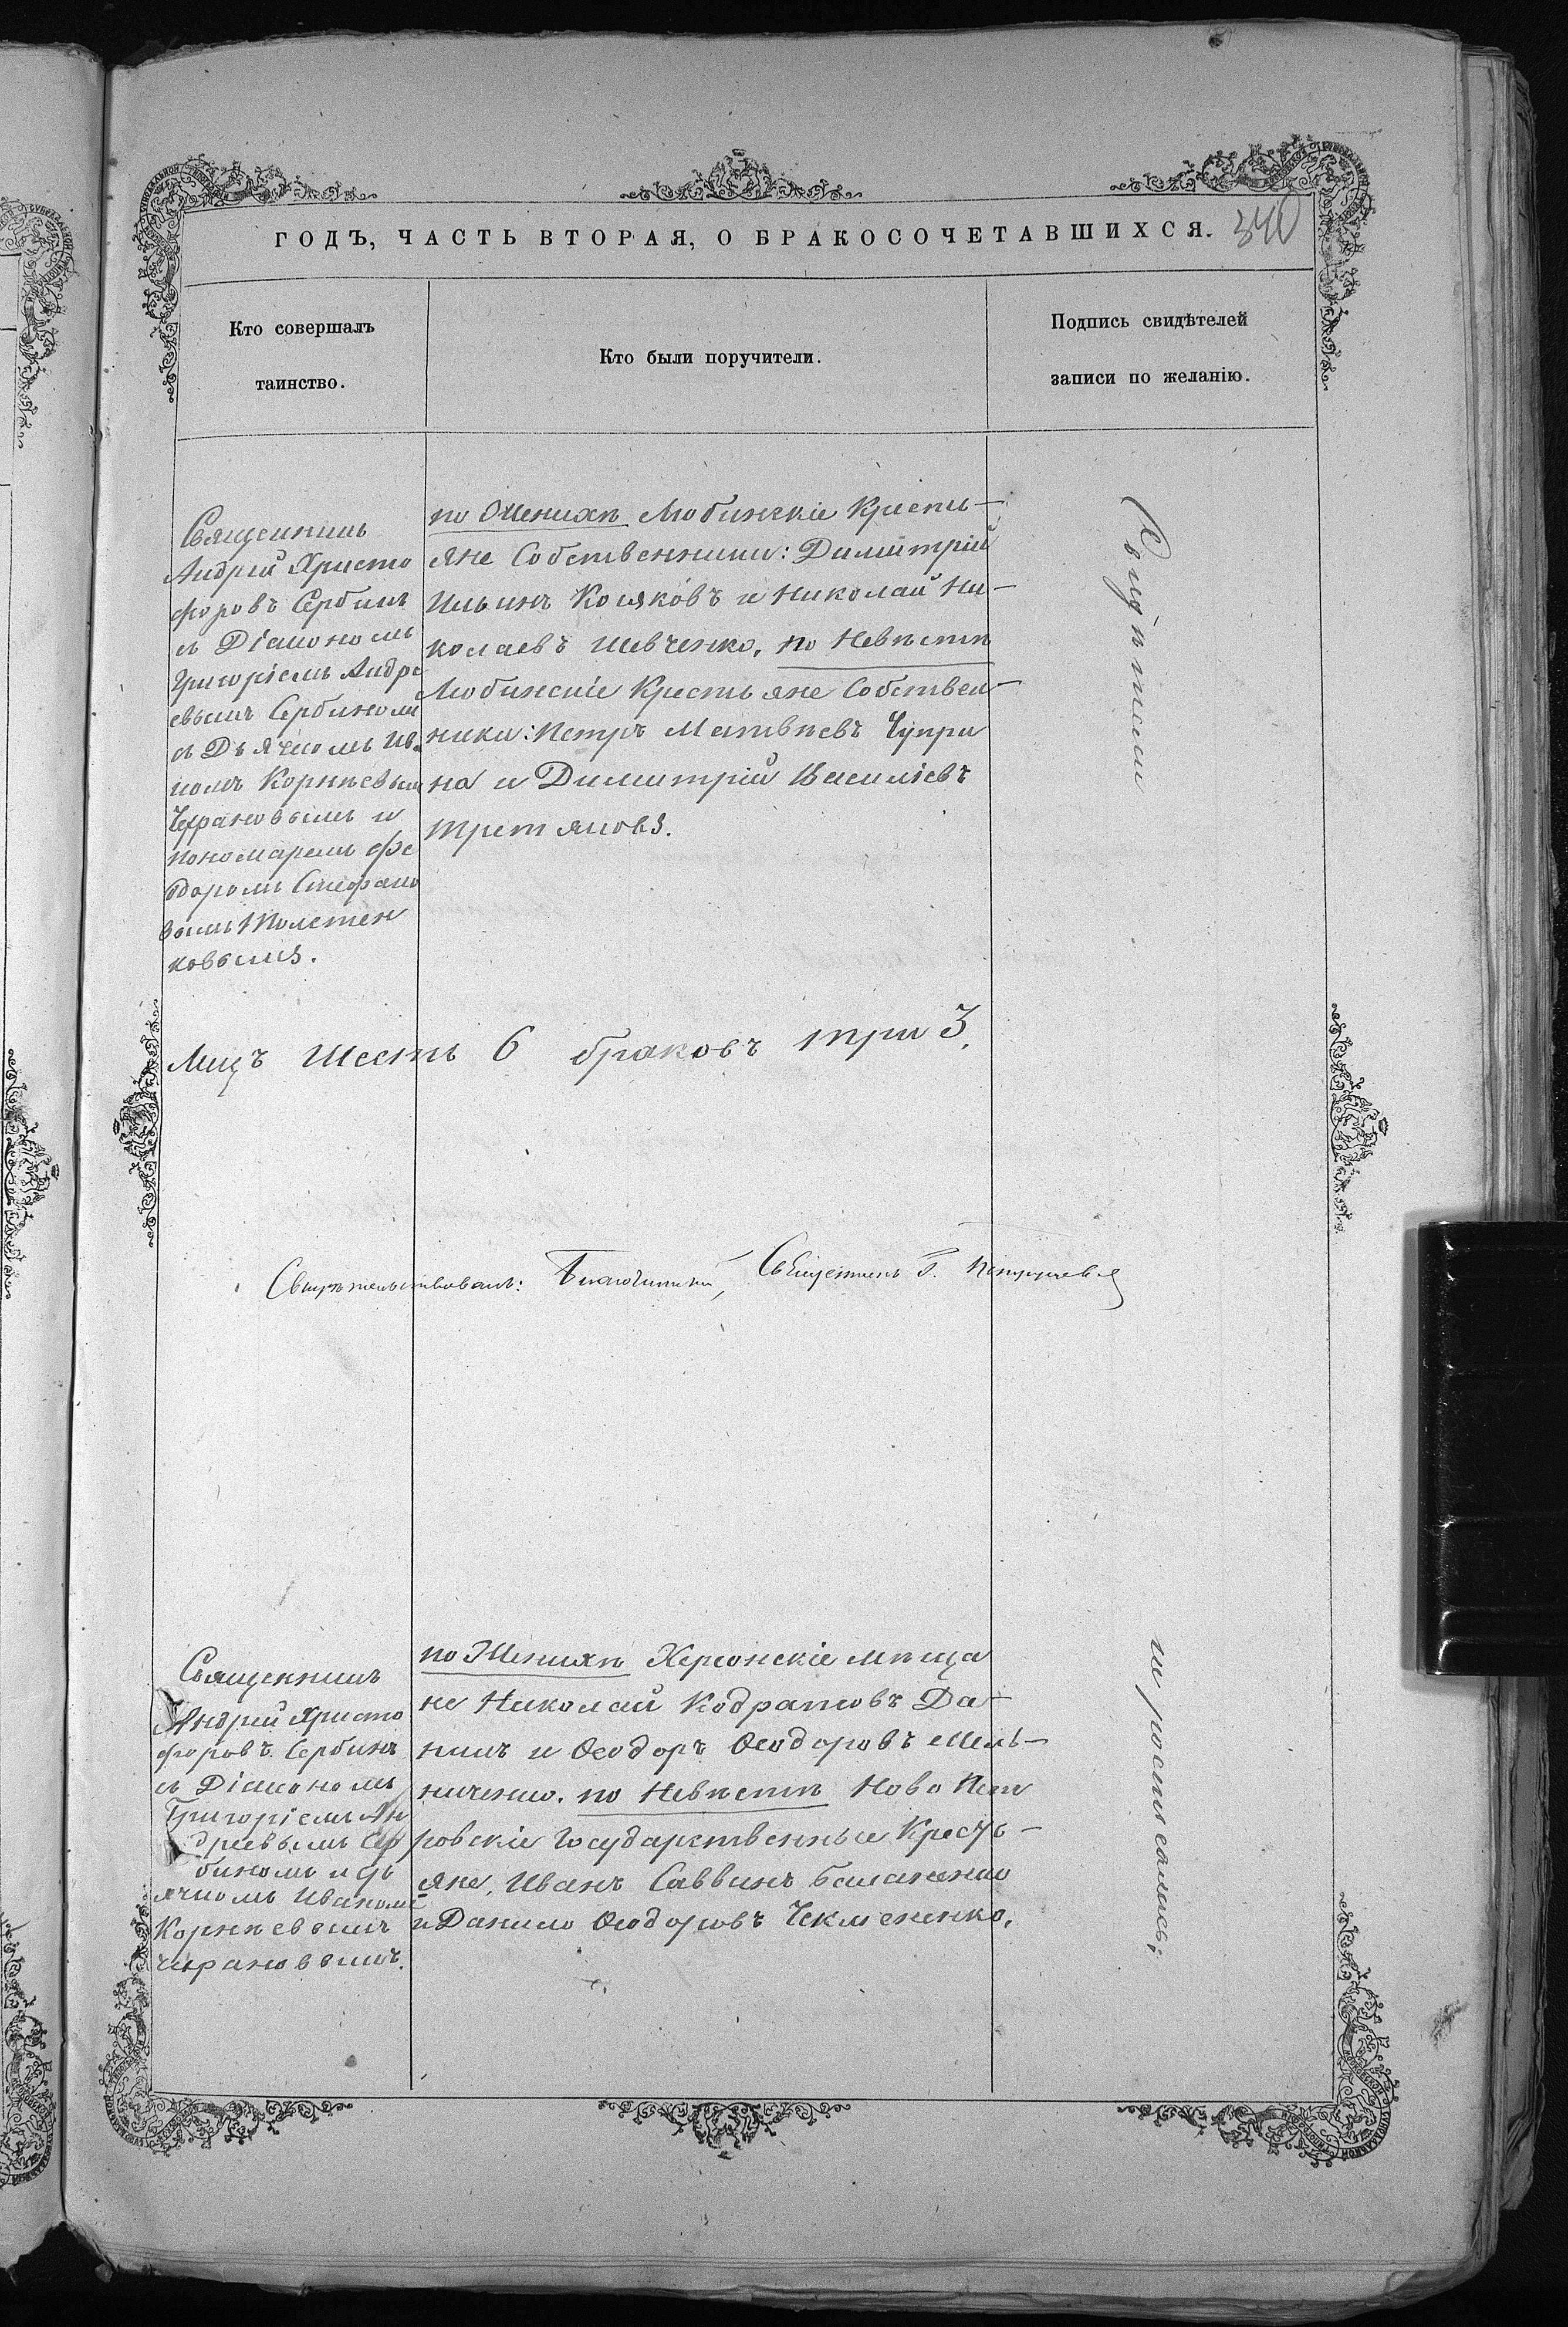 ГОДЪ, ЧАСТЬ ВТОРАЯ, О БРАКОСОЧЕТАВШИХСЯ. 340
Кто совершалъ
таинство.
Кто были поручители.
Подпись свидѣтелей
записи по желанію.
Священникъ
Андрей Христо
форовъ Сербинъ
съ Діакономъ
Григоріемъ Андре
евымъ Сербиномъ
съ Дьячкомъ Ива
номъ Корнѣевым
и
пономаремъ Фе
доромъ Стефано
вымъ Толстен
ковымъ.
по Женихѣ Любинскіе Кресть-
яне Собственники: Димитрій
Ильинъ Козяковъ и Николай Ни-
колаевъ Шевченко, по Невѣстѣ
Любинскіе Крестьяне Собствен-
ники: Петръ Матвѣевъ Чупри
на и Димитрій Василіевъ
Третяковъ.
Лицъ шесть 6 браковъ три 3.
Свидѣтельствовалъ: Благочинный, Священникъ
Священникъ
Андрей Христо
форовъ Сербинъ
съ Діакономъ
Григоріемъ Ан
дреевымъ Сер
биномъ и дь
ячкомъ Иваномъ
Корнѣевымъ
по Женихѣ Херсонскіе мѣща
не Николай Кодратовъ Да-
никъ и Ѳеодоръ Ѳеодоровъ Мель-
ниченко. по Невѣстѣ Ново Пет
ровскіе Государственные Кресть-
яне, Иванъ Саввинъ Балаженко
и Данило Ѳеодоровъ Чекмененко.